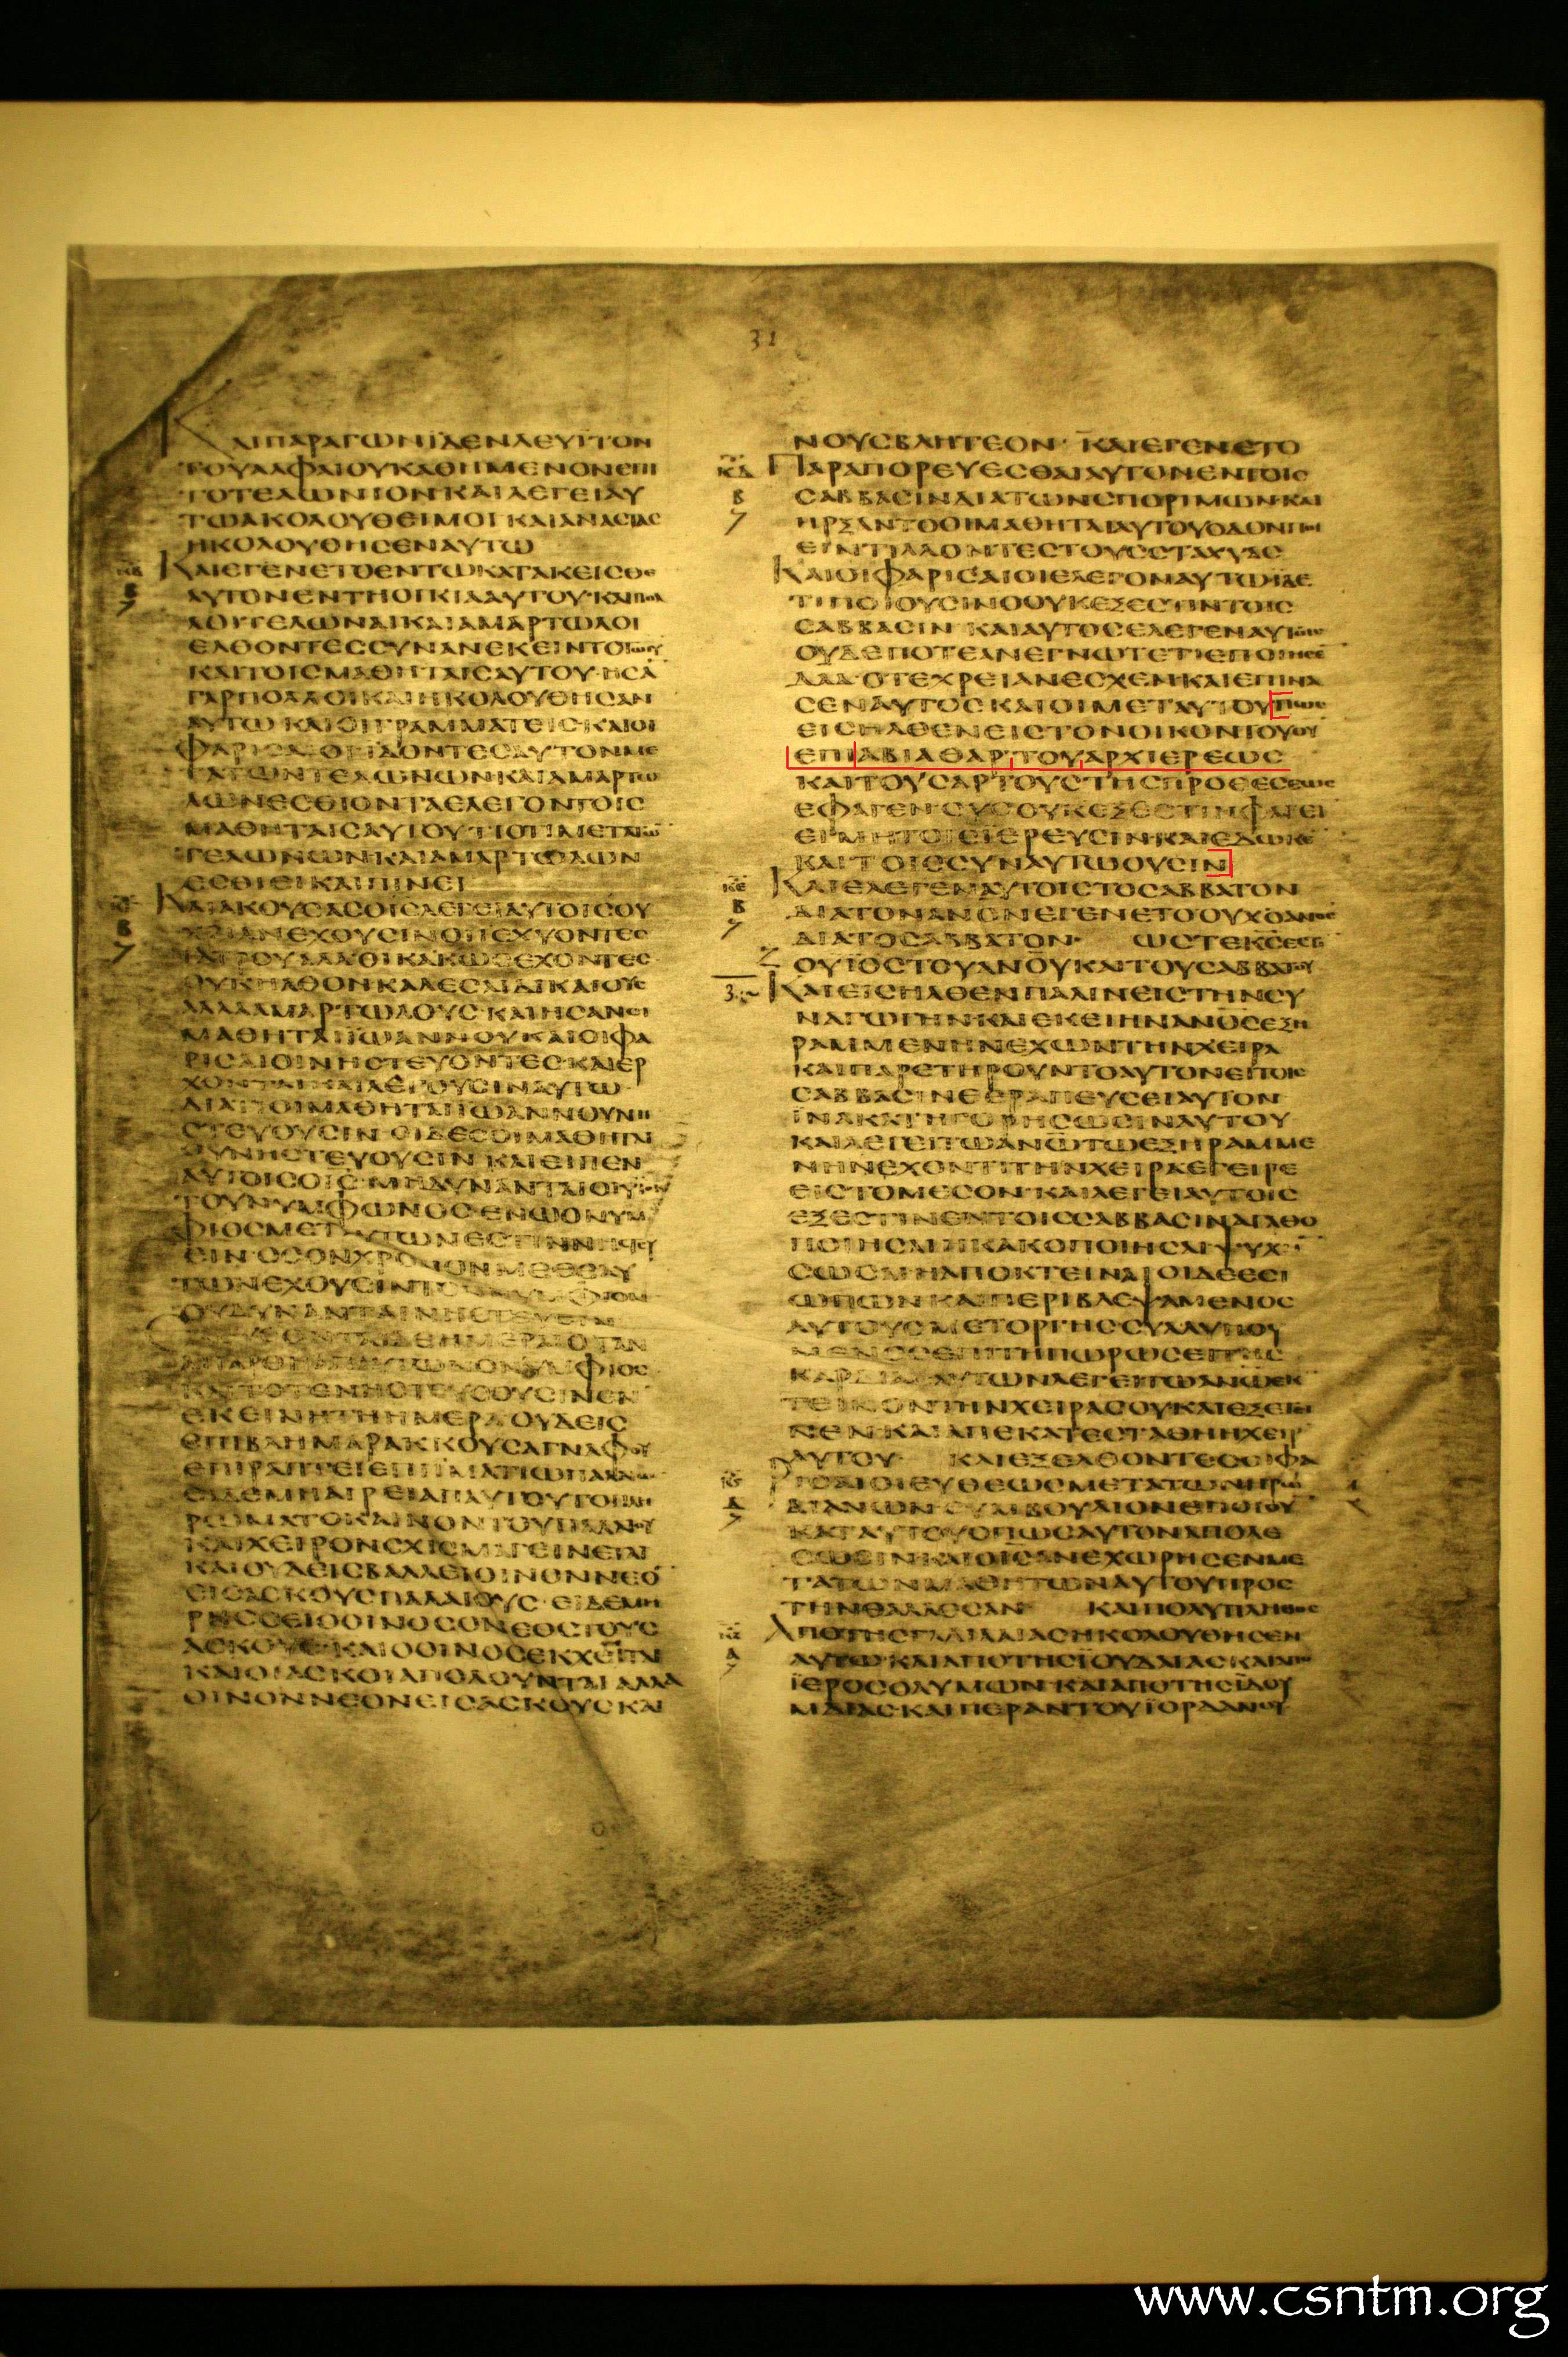 31
ΚΑΙΠΑΡΑΓΩΝΪΔΕΝΛΕΥΙΤΟΝ
ΤΟΥΑΛΦΑΙΟΥΚΑΘΗΜΕΝΟΝΕΠΙ
ΤΟΤΕΛΩΝΙΟΝΚΑΙΛΕΓΕΙΑΥ
ΤΩΑΚΟΛΟΥΘΕΙΜΟΙΚΑΙΑΝΑΣΤΑΣ
ΗΚΟΛΟΥΘΗΣΕΝΑΥΤΩ
ΚΑΙΕΓΕΝΕΤΟΕΝΤΩΚΑΤΑΚΕΙΣΘΑΙ
ΑΥΤΟΝΕΝΤΗΟΙΚΙΑΑΥΤΟΥ·ΚΑΙΠΟΛ
ΛΟΙΤΕΛΩΝΑΙΚΑΙΑΜΑΡΤΩΛΟΙ
ΕΛΘΟΝΤΕΣΣΥΝΑΝΕΚΕΙΝΤΟΤΩΙΥ
ΚΑΙΤΟΙΣΜΑΘΗΤΑΙΣΑΥΤΟΥ·ΗΣΑ
ΓΑΡΠΟΛΛΟΙΚΑΙΗΚΟΛΟΥΘΗΣΑΝ
ΑΥΤΩΚΑΙΟΙΓΡΑΜΜΑΤΕΙΣΚΑΙΟΙ
ΦΑΡΙΣΑΙΟΙΪΔΟΝΤΕΣΑΥΤΟΝΜΕ
ΤΑΤΩΝΤΕΛΩΝΩΝΚΑΙΑΜΑΡΤΩ
ΛΩΝΕΣΘΙΟΝΤΑΕΛΕΓΟΝΤΟΙΣ
ΜΑΘΗΤΑΙΣΑΥΤΟΥ·ΤΙΟΤΙΜΕΤΑΤΩ
ΤΕΛΩΝΩΝΚΑΙΑΜΑΡΤΩΛΩΝ
ΕΣΘΙΕΙΚΑΙΠΙΝΕΙ
ΚΑΙΑΚΟΥΣΑΣΟΙΣΛΕΓΕΙΑΥΤΟΙΣΟΥ
ΧΡΙΑΝΕΧΟΥΣΙΝΟΙΙΣΧΥΟΝΤΕΣ
ΙΑΤΡΟΥΑΛΛΟΙΚΑΚΩΣΕΧΟΝΤΕΣ
ΟΥΚΗΛΘΟΝΚΑΛΕΣΑΙΔΙΚΑΙΟΥΣ
ΑΛΛΑΑΜΑΡΤΩΛΟΥΣ·ΚΑΙΗΣΑΝΟΙ
ΜΑΘΗΤΑΙΪΩΑΝΝΟΥΚΑΙΟΙΦΑ
ΡΙΣΑΙΟΙΝΗΣΤΕΥΟΝΤΕΣ·ΚΑΙΕΡ
ΧΟΝΤΑΙΚΑΙΛΕΓΟΥΣΙΝΑΥΤΩ
ΔΙΑΤΙΟΙΜΑΘΗΤΑΙΪΩΑΝΝΟΥΝΗ
ΣΤΕΥΟΥΣΙΝΟΙΔΕΣΟΙΜΑΘΗΤΑΙ
ΟΥΝΗΣΤΕΥΟΥΣΙΝΚΑΙΕΙΠΕΝ
ΕΚΕΙΝΗΤΗΗΜΕΡΑΟΥΔΕΙΣ
ΕΠΙΒΛΗΜΑΡΑΚΚΟΥΣΑΓΝΑΦΟΥ
ΚΑΙΧΕΙΡΟΝΣΧΙΣΜΑΓΕΙΝΕΤΑΙ
ΚΑΙΟΥΔΕΙΣΒΑΛΛΕΙΟΙΝΟΝΝΕΟ
ΕΙΣΑΣΚΟΥΣΠΑΛΑΙΟΥΣ·ΕΙΔΕΜΗ
ΡΗΣΣΕΙΟΟΙΝΟΣΟΝΕΟΣΤΟΥΣ
ΑΣΚΟΥΣ·ΚΑΙΟΟΙΝΟΣΕΚΧΕΙΤΑΙ
ΚΑΙΟΙΑΣΚΟΙΑΠΟΛΟΥΝΤΑΙΑΛΛΑ
ΟΙΝΟΝΝΕΟΝΕΙΣΑΣΚΟΥΣΚΑΙ
ΝΟΥΣΒΛΗΤΕΟΝ·ΚΑΙΕΓΕΝΕΤΟ
ΠΑΡΑΠΟΡΕΥΕΣΘΑΙΑΥΤΟΝΕΝΤΟΙΣ
ΣΑΒΒΑΣΙΝΔΙΑΤΩΝΣΠΟΡΙΜΩΝ·ΚΑΙ
ΗΡΞΑΝΤΟΟΙΜΑΘΗΤΑΙΑΥΤΟΥΟΔΟΝΠΟΙ
ΕΙΝΤΙΛΛΟΝΤΕΣΤΟΥΣΣΤΑΧΥΑΣ
ΚΑΙΟΙΦΑΡΙΣΑΙΟΙΕΛΕΓΟΝΑΥΤΩΪΔΕ
ΤΙΠΟΙΟΥΣΙΝΟΟΥΚΕΞΕΣΤΙΝΤΟΙΣ
ΣΑΒΒΑΣΙΝ·ΚΑΙΑΥΤΟΣΕΛΕΓΕΝΑΥΤΟΙΣ
ΟΥΔΕΠΟΤΕΑΝΕΓΝΩΤΕΤΙΕΠΟΙΗΣΕ
ΔΑΔΟΤΕΧΡΕΙΑΝΕΣΧΕΝΚΑΙΕΠΙΝΑ
ΣΕΝΑΥΤΟΣΚΑΙΟΙΜΕΤΑΥΤΟΥΠΩΣ
ΕΙΣΗΛΘΕΝΕΙΣΤΟΝΟΙΚΟΝΤΟΥΘΥ
ΕΠΙΑΒΙΑΘΑΡΤΟΥΑΡΧΙΕΡΕΩΣ
ΚΑΙΤΟΥΣΑΡΤΟΥΣΤΗΣΠΡΟΘΕΣΕΩΣ
ΕΦΑΓΕΝΟΥΣΟΥΚΕΞΕΣΤΙΝΦΑΓΕΙ
ΕΙΜΗΤΟΙΣΪΕΡΕΥΣΙΝ·ΚΑΙΕΔΩΚΕ
ΚΑΙΤΟΙΣΣΥΝΑΥΤΩΟΥΣΙΝ
ΚΑΙΕΛΕΓΕΝΑΥΤΟΙΣΤΟΣΑΒΒΑΤΟΝ
ΔΙΑΤΟΝΑΝΟΝΕΓΕΝΕΤΟΟΥΧΟΑΝΟΣ
ΔΙΑΤΟΣΑΒΒΑΤΟΝ· ΩΣΤΕΚΣΕΣΤΙ
ΟΥΙΟΣΤΟΥΑΝΟΥΚΑΙΤΟΥΣΑΒΒΑΤΟΥ
ΚΑΙΕΙΣΗΛΘΕΝΠΑΛΙΝΕΙΣΤΗΝΣΥ
ΝΑΓΩΓΗΝΚΑΙΕΚΕΙΗΝΑΝΟΣΕΞΗ
ΡΑΜΜΕΝΗΝΕΧΩΝΤΗΝΧΕΙΡΑ
ΚΑΙΠΑΡΕΤΗΡΟΥΝΤΟΑΥΤΟΝΕΙΤΟΙΣ
ΣΑΒΒΑΣΙΝΘΕΡΑΠΕΥΣΕΙΑΥΤΟΝ
ΪΝΑΚΑΤΗΓΟΡΗΣΩΣΙΝΑΥΤΟΥ
ΚΑΙΛΕΓΕΙΤΩΑΝΩΤΩΕΞΗΡΑΜΜΕ
ΝΗΝΕΧΟΝΤΙΤΗΝΧΕΙΡΑΕΓΕΙΡΕ
ΕΙΣΤΟΜΕΣΟΝ·ΚΑΙΛΕΓΕΙΑΥΤΟΙΣ
ΕΞΕΣΤΙΝΕΝΤΟΙΣΣΑΒΒΑΣΙΝΑΓΑΘΟ
ΠΟΙΗΣΑΙΗΚΑΚΟΠΟΙΗΣΑΙΨΥΧΗ
ΣΩΣΑΙΗΑΠΟΚΤΕΙΝΑΙΟΙΔΕΕΣΙ
ΩΠΩΝΚΑΙΠΕΡΙΒΛΕΨΑΜΕΝΟΣ
ΑΥΤΟΥΣΜΕΤΟΡΓΗΣΣΥΛΛΥΠΟΥ
ΜΕΝΟΣΕΠΙΤΗΠΩΡΩΣΕΙΤΗΣ
ΚΑΡΔΙΑΣΑΥΤΩΝΛΕΓΕΙΤΩΑΝΩΕΚ
ΤΕΙΝΟΝΤΗΝΧΕΙΡΑΣΟΥΚΑΙΕΞΕΤΕΙ
ΝΕΝΚΑΙΑΠΕΚΑΤΕΣΤΑΘΗΗΧΕΙΡ
ΑΥΤΟΥ ΚΑΙΕΞΕΛΘΟΝΤΕΣΟΙΦΑ
ΡΙΣΑΙΟΙΕΥΘΕΩΣΜΕΤΑΤΩΝΗΡΩ
ΔΙΑΝΩΝΣΥΜΒΟΥΛΙΟΝΕΠΟΙΟΥ
ΚΑΤΑΥΤΟΥΟΠΩΣΑΥΤΟΝΑΠΟΛΕ
ΣΩΣΙΝΚΑΙΟΙΣΑΝΕΧΩΡΗΣΕΝΜΕ
ΤΑΤΩΝΜΑΘΗΤΩΝΑΥΤΟΥΠΡΟΣ
ΤΗΝΘΑΛΑΣΣΑΝ ΚΑΙΠΟΛΥΠΛΗΘΟΣ
ΑΠΟΤΗΣΓΑΛΙΛΑΙΑΣΗΚΟΛΟΥΘΗΣΕΝ
ΑΥΤΩ·ΚΑΙΑΠΟΤΗΣΪΟΥΔΑΙΑΣΚΑΙΑΠΟ
ΪΕΡΟΣΟΛΥΜΩΝ·ΚΑΙΑΠΟΤΗΣΪΔΟΥ
ΜΑΙΑΣ·ΚΑΙΠΕΡΑΝΤΟΥΪΟΡΔΑΝΟΥ
www.csntm.org